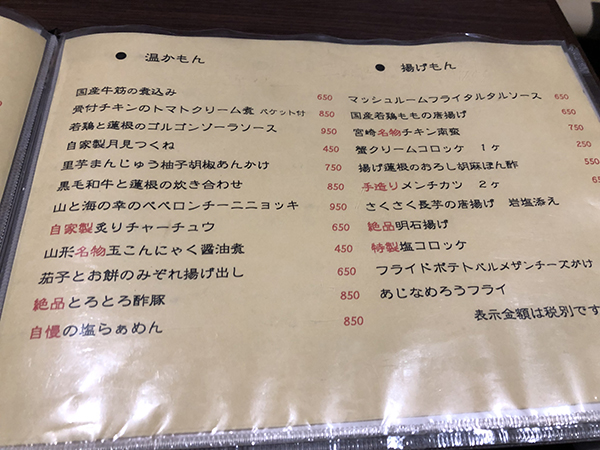 ● 温かもん
国産牛筋の煮込み 650
骨付チキンのトマトクリーム煮 バケット付 850
若鶏と蓮根のゴルゴンソーラソース 950
自家製月見つくね 450
里芋まんじゅう柚子胡椒あんかけ 750
黒毛和牛と蓮根の炊き合わせ 850
山と海の幸のペペロンチーニニョッキ 950
自家製炙りチャーチュウ 650
山形名物玉こんにゃく醤油煮 450
茄子とお餅のみぞれ揚げ出し 650
絶品とろとろ酢豚 850
自慢の塩らぁめん 850
● 揚げもん
マッシュルームフライタルタルソース 650
国産若鶏ももの唐揚げ 650
宮崎名物チキン南蛮 750
蟹クリームコロッケ 1ヶ 250
揚げ蓮根のおろし胡麻ぽん酢 550
手造りメンチカツ 2ヶ
さくさく長芋の唐揚げ 岩塩添え
絶品明石揚げ
特製塩コロッケ
フライドポテトパルメザンチーズかけ
あじなめろうフライ
表示金額は税別です